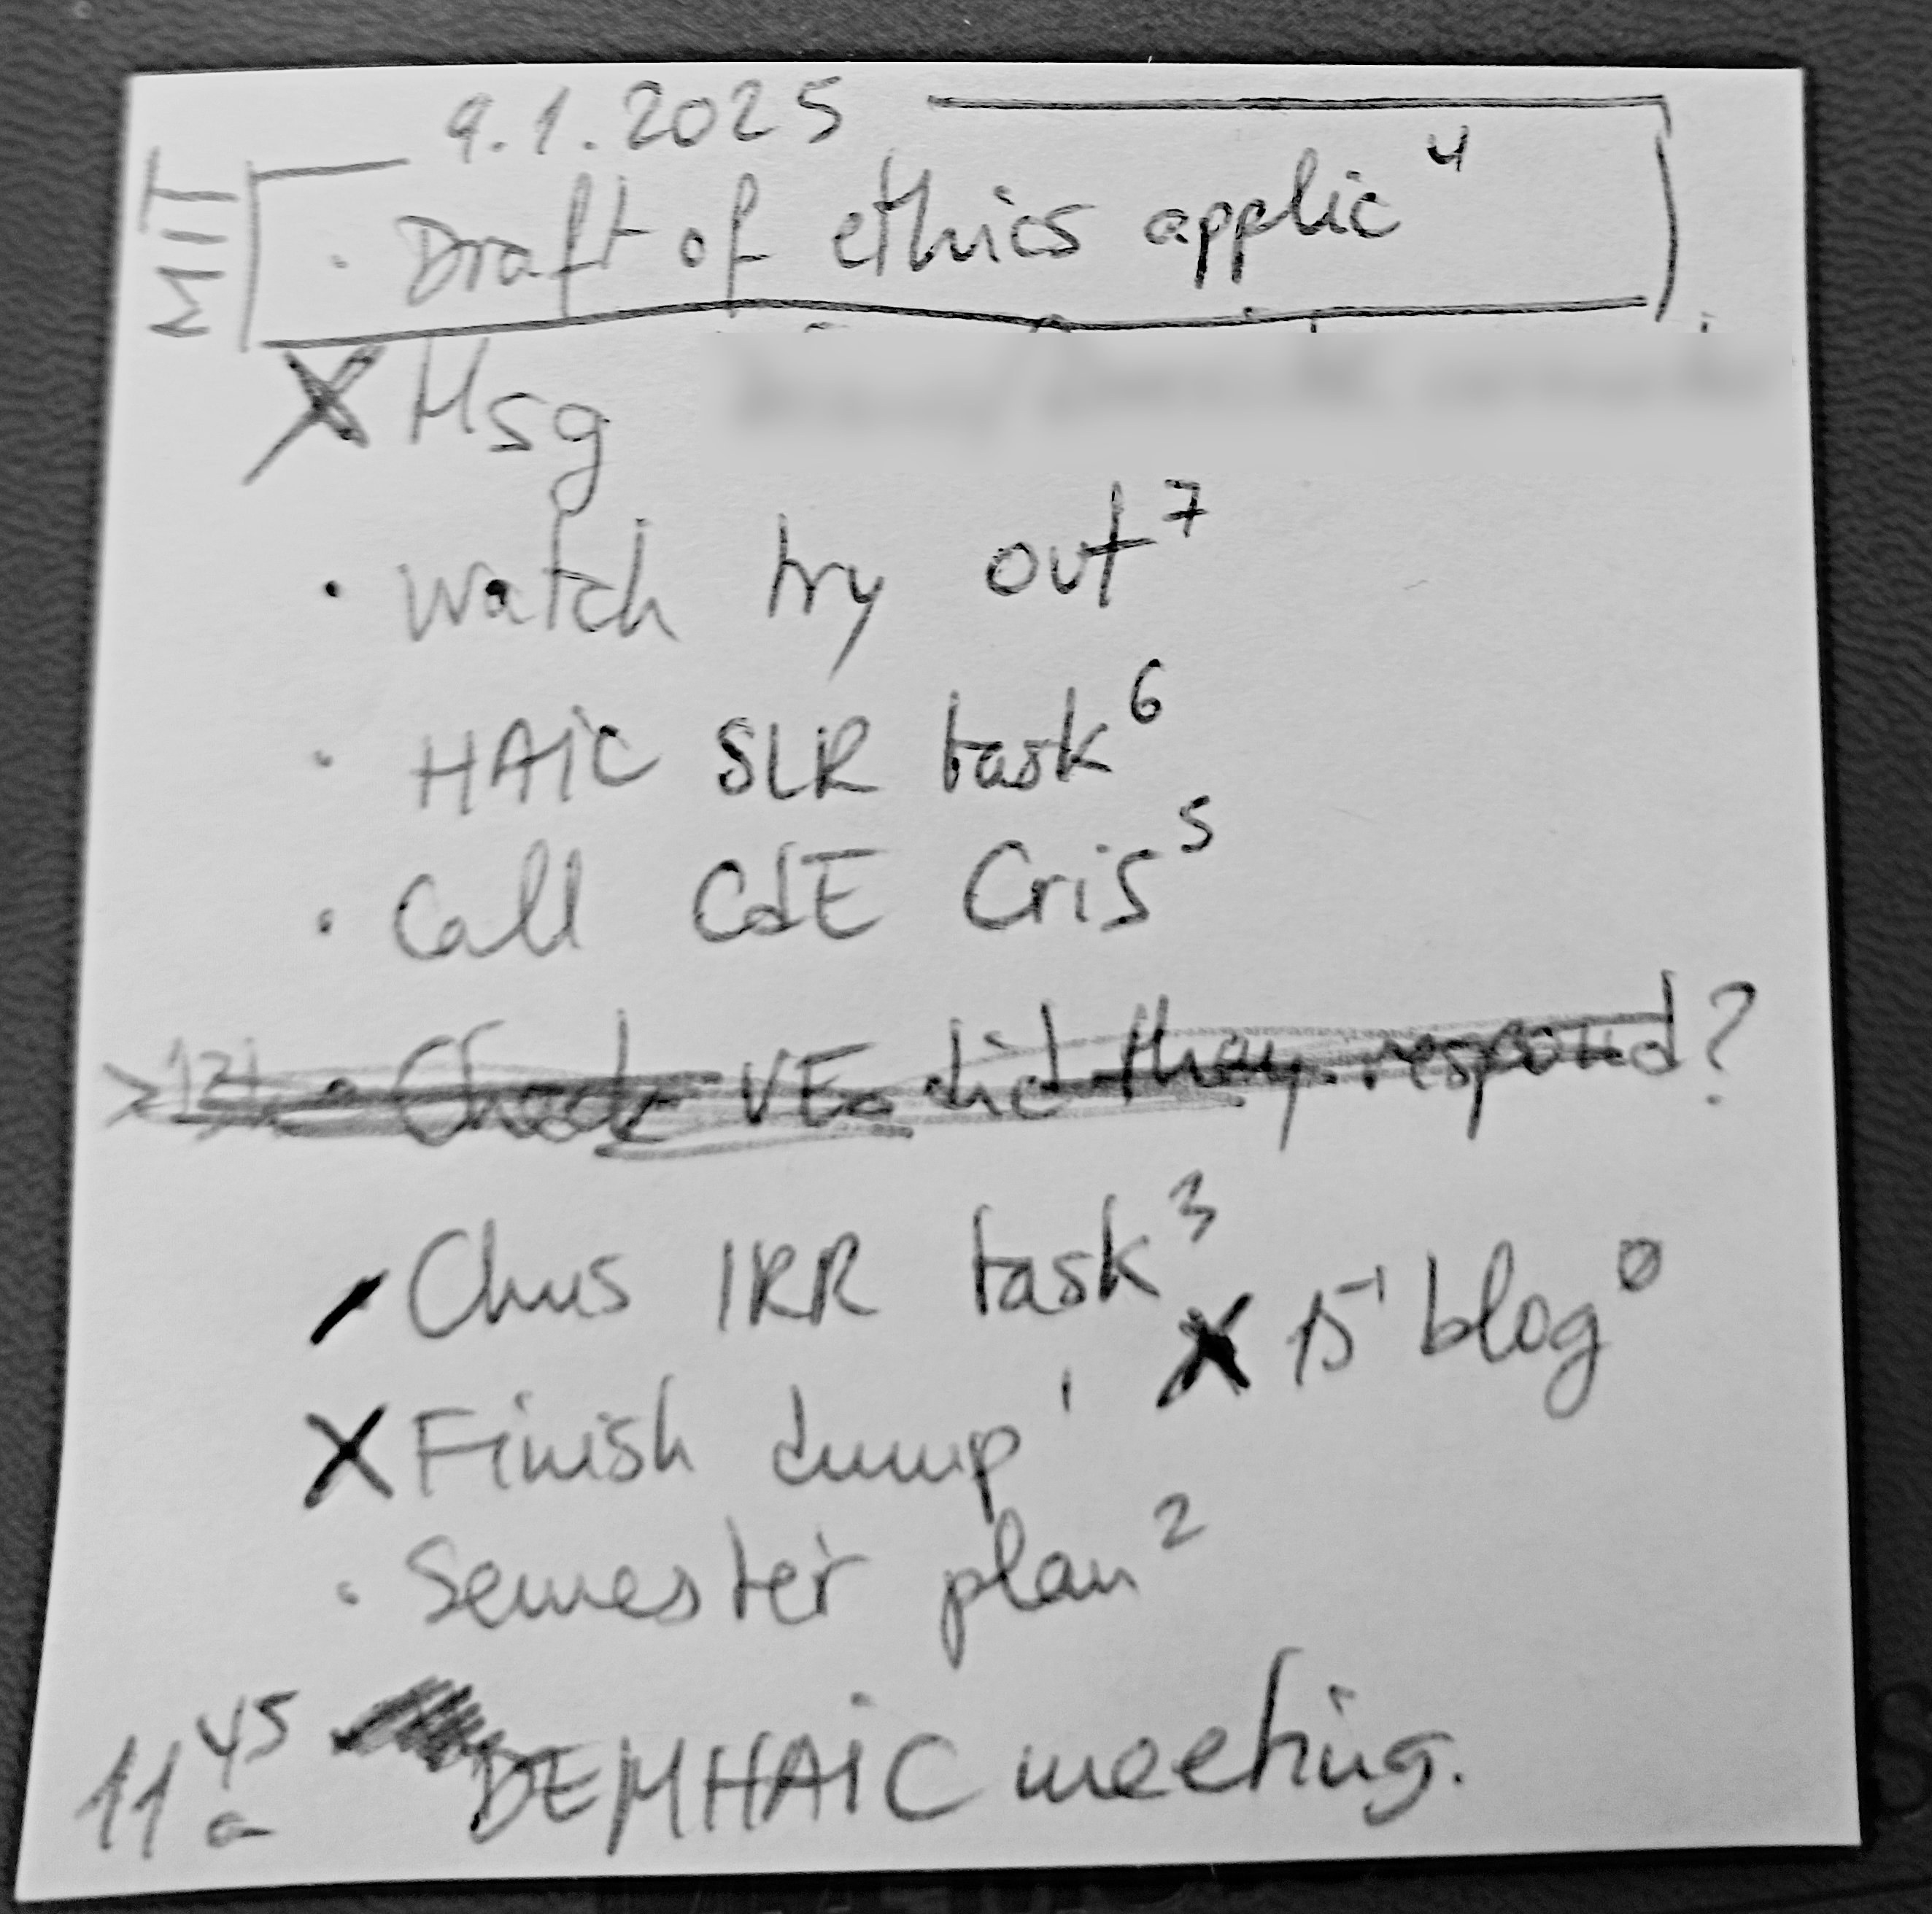 9.1.2025
MIT
· Draft of ethics applic 4
X Msg
· Watch try out 7
· HAIC SLR task 6
· Call CdE Cris 5
· Check VE did they respond?
Chus IRR task 3
X blog 0
X Finish dump 1
· Semester plan 2
11 45 a DEMHAIC meeting.